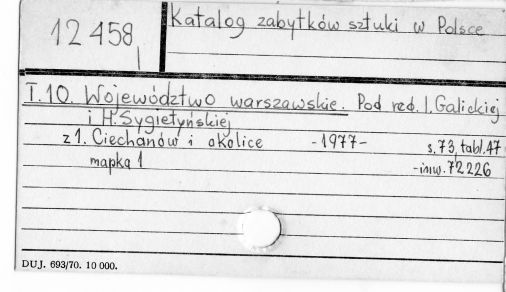 12 458
Katalog zabytków sztuki w Polsce
T.10. Województwo warszawskie. Pod red. I. Galickiej
i H. Sygietyńskiej
z 1. Ciechanów i okolice -1977- s. 73, tabl. 47
mapka 1 -inw. 72226
DUJ. 693/70. 10 000.